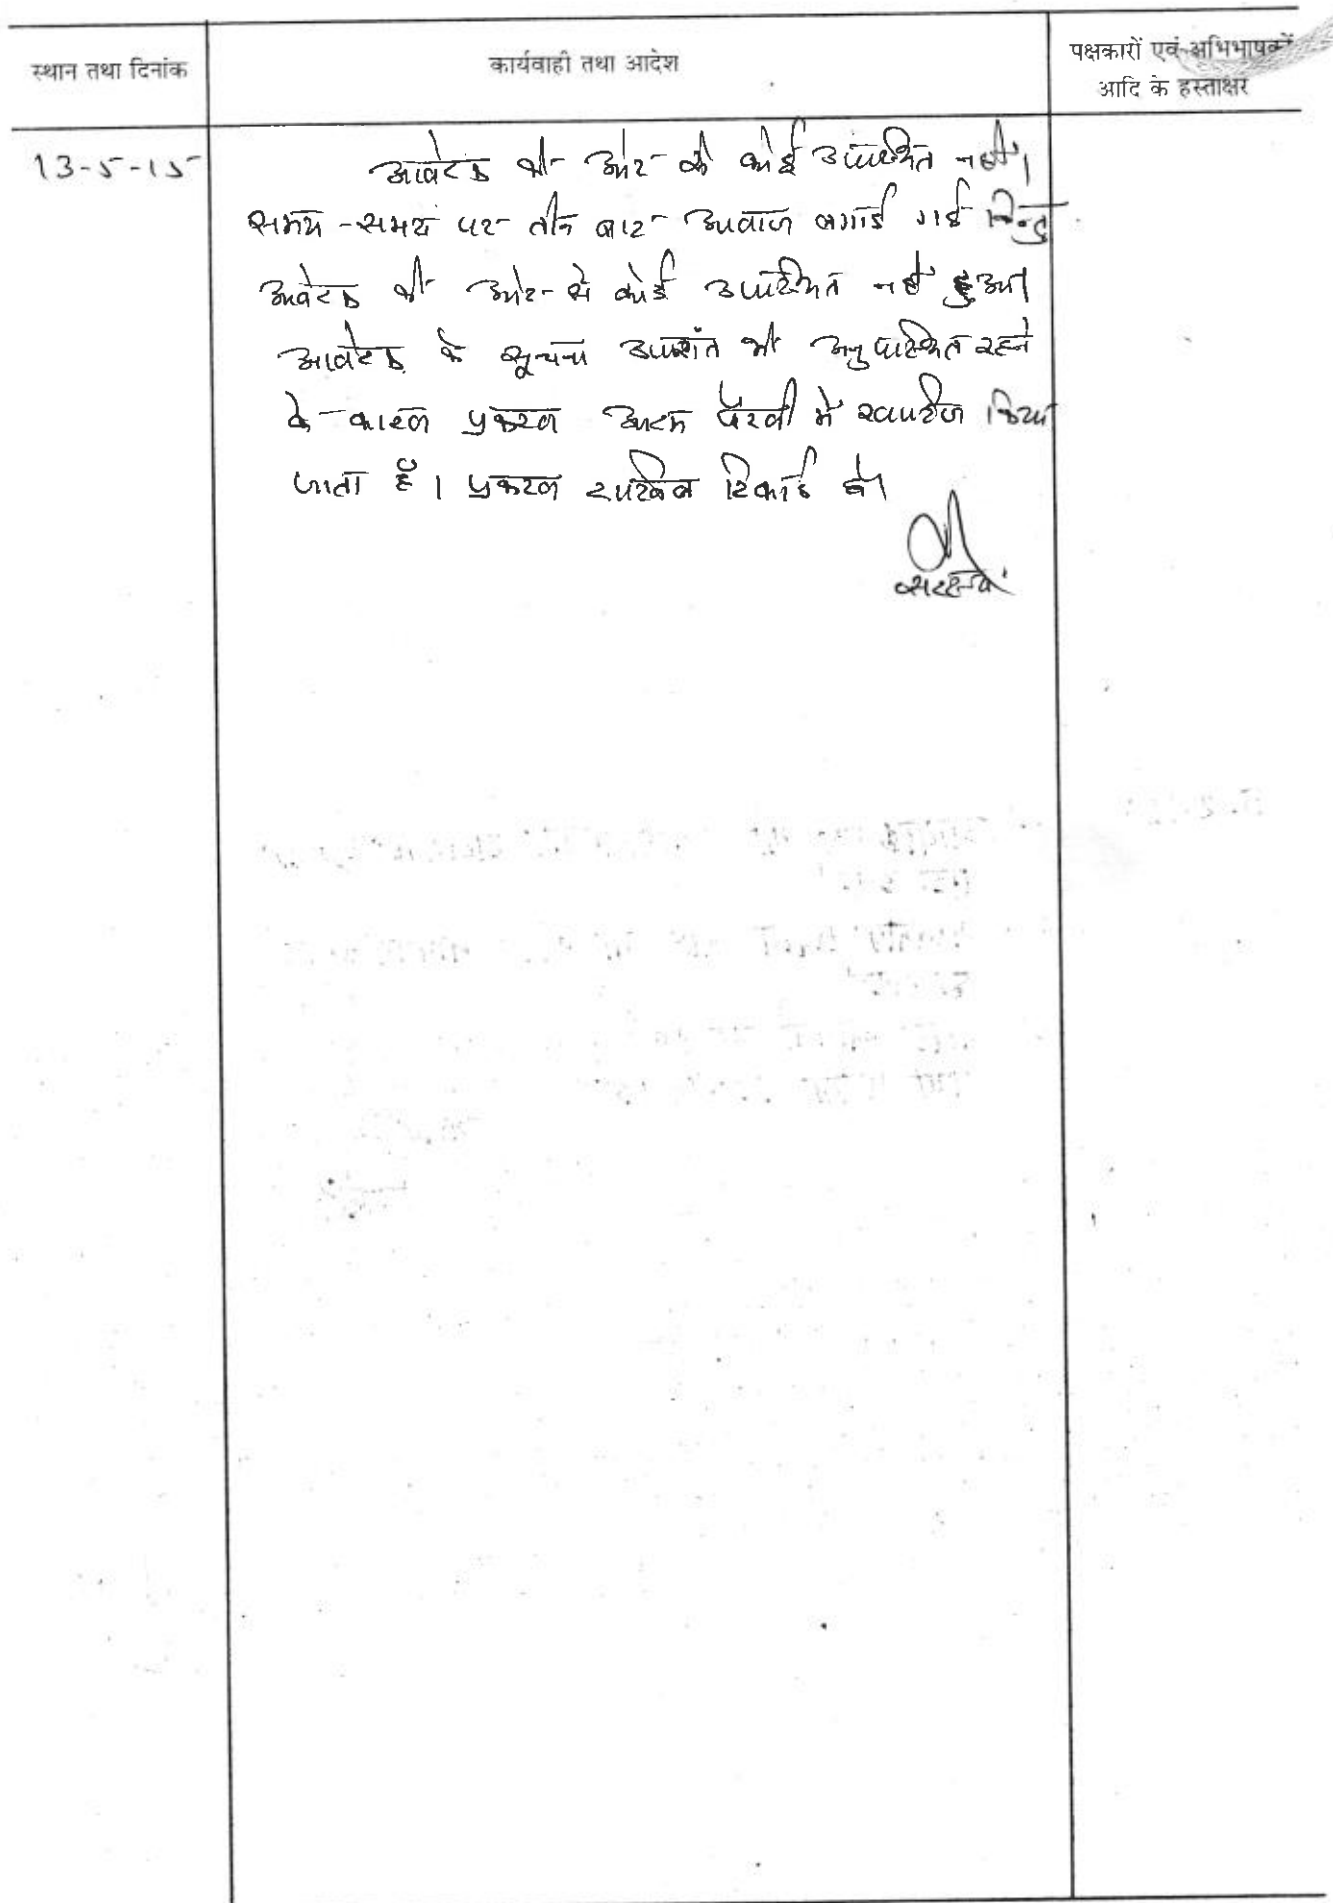 स्थान तथा दिनांक
कार्यवाही तथा आदेश
पक्षकारों एवं अभिभाषकों
आदि के हस्ताक्षर
13-5-15
आवेदक की ओर से कोई उपस्थित नहीं।
समय-समय पर तीन बार आवाज लगाई गई किन्तु
आवेदक की ओर से कोई उपस्थित नहीं हुआ।
आवेदक के सूचना उपरांत भी अनुपस्थित रहने
के कारण प्रकरण अदम पैरवी में खारिज किया
जाता है। प्रकरण दाखिल रिकार्ड हो।
सदस्य